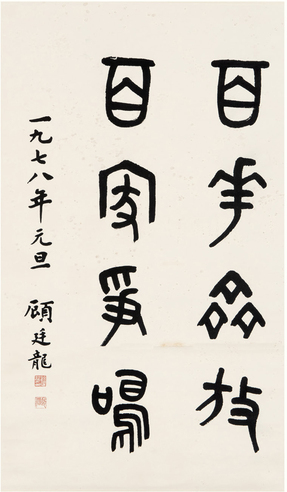 百花齊放
百家爭鳴
一九七八年元旦 顧廷龍